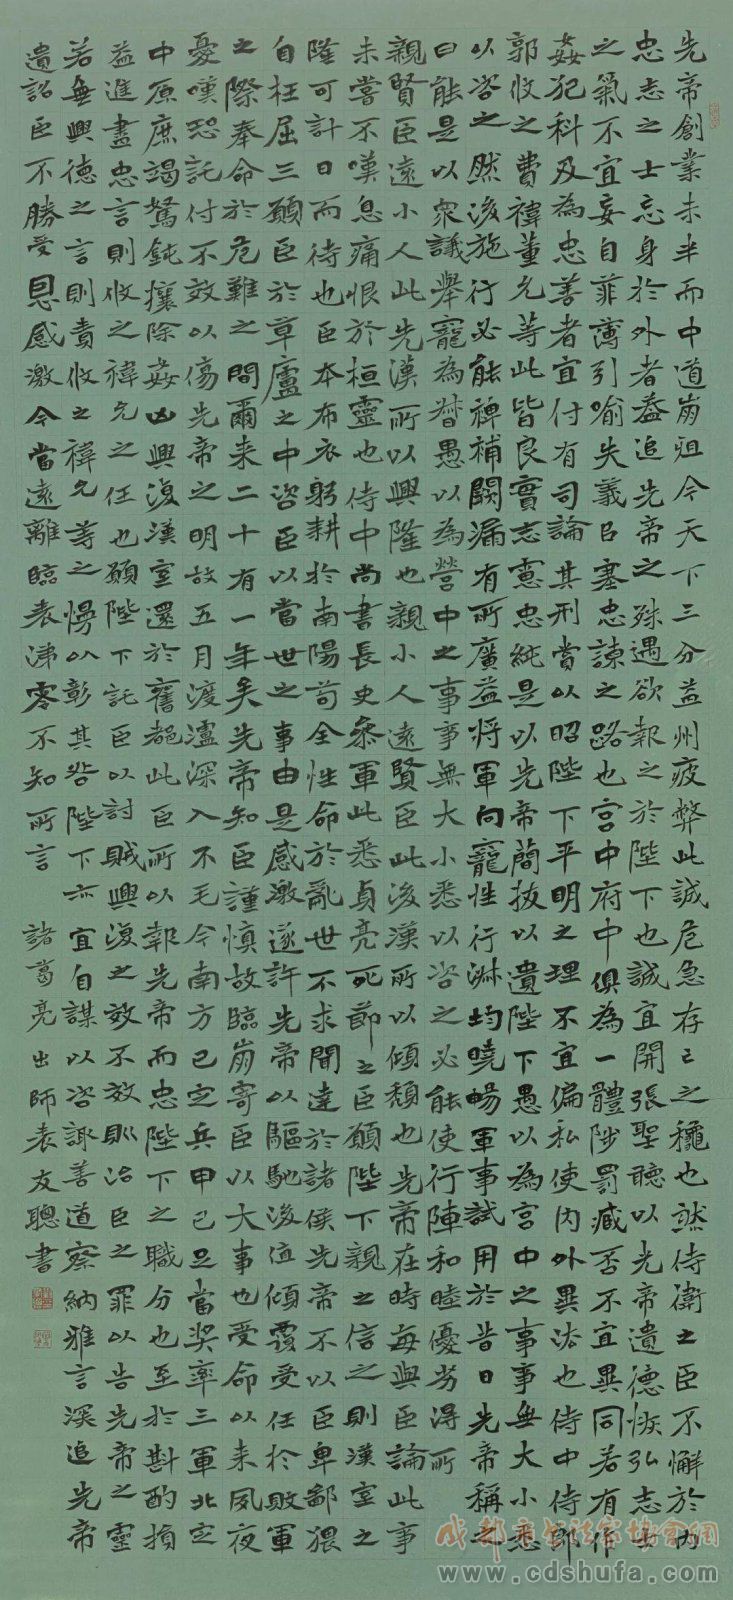 先帝創業未半而中道崩殂今天下三分益州疲弊此誠危急存亡之穐也然侍衛之臣不懈於內
忠志之士忘身於外者蓋追先帝之殊遇欲報之於陛下也誠宜開張聖聽以光帝遺德恢弘志士
之氣不宜妄自菲薄引喻失義以塞忠諫之路也宮中府中俱為一體陟罰臧否不宜異同若有作
姦犯科及為忠善者宜付有司論其刑賞以昭陛下平明之理不宜偏私使內外異法也侍中侍郎
郭攸之費禕董允等此皆良實志慮忠純是以先帝簡拔以遺陛下愚以為宮中之事事無大小悉
以咨之然後施行必能裨補闕漏有所廣益將軍向寵性行淋均曉暢軍事試用於昔日先帝稱之
曰能是以眾議舉寵為督愚以為營中之事事無大小悉以咨之必能使行陣和睦優劣得所
親賢臣遠小人此先漢所以興隆也親小人遠賢臣此後漢所以傾頹也先帝在時每與臣論此事
未嘗不嘆息痛恨於桓靈也侍中尚書長史參軍此悉貞亮死節之臣願陛下親之信之則漢室之
隆可計日而待也臣本布衣躬耕於南陽苟全性命於亂世不求聞達於諸侯先帝不以臣卑鄙猥
自枉屈三顧臣於草廬之中咨臣以當世之事由是感激遂許先帝以驅馳後值傾覆受任於敗軍
之際奉命於危難之間爾来二十有一年矣先帝知臣謹慎故臨崩寄臣以大事也受命以来夙夜
憂嘆恐託付不效以傷先帝之明故五月渡瀘深入不毛今南方已定兵甲已足當奖率三軍北定
中原庶竭駑鈍攘除姦凶興復漢室還於舊都此臣所以報先帝而忠陛下之職分也至於斟酌損
益進盡忠言則攸之禕允之任也願陛下託臣以討賊興復之效不效則治臣之罪以告先帝之靈
若無興德之言則責攸之禕允等之慢以彰其咎陛下亦宜自謀以咨諏善道察納雅言深追先帝
遺詔臣不勝受恩感激今當遠離臨表涕零不知所言 諸葛亮出師表友聰書
成都市書法家協會網
www.cdshufa.com